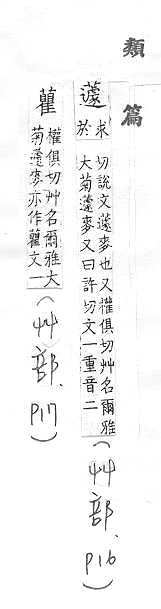 類篇
蘧求於
切說文蘧麥也又權俱切艸名爾雅
大菊蘧麥又曰許切文一重音二
(艸部、P16)
權俱切艸名爾雅大
菊蘧麥亦作文一
(艸部、P17)